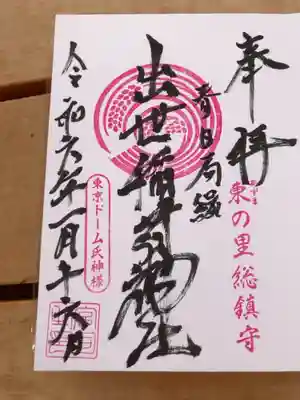 奉拝
東の里総鎮守
春日局縁
出世稲荷神社
東京ドーム氏神様
令和六年一月十六日